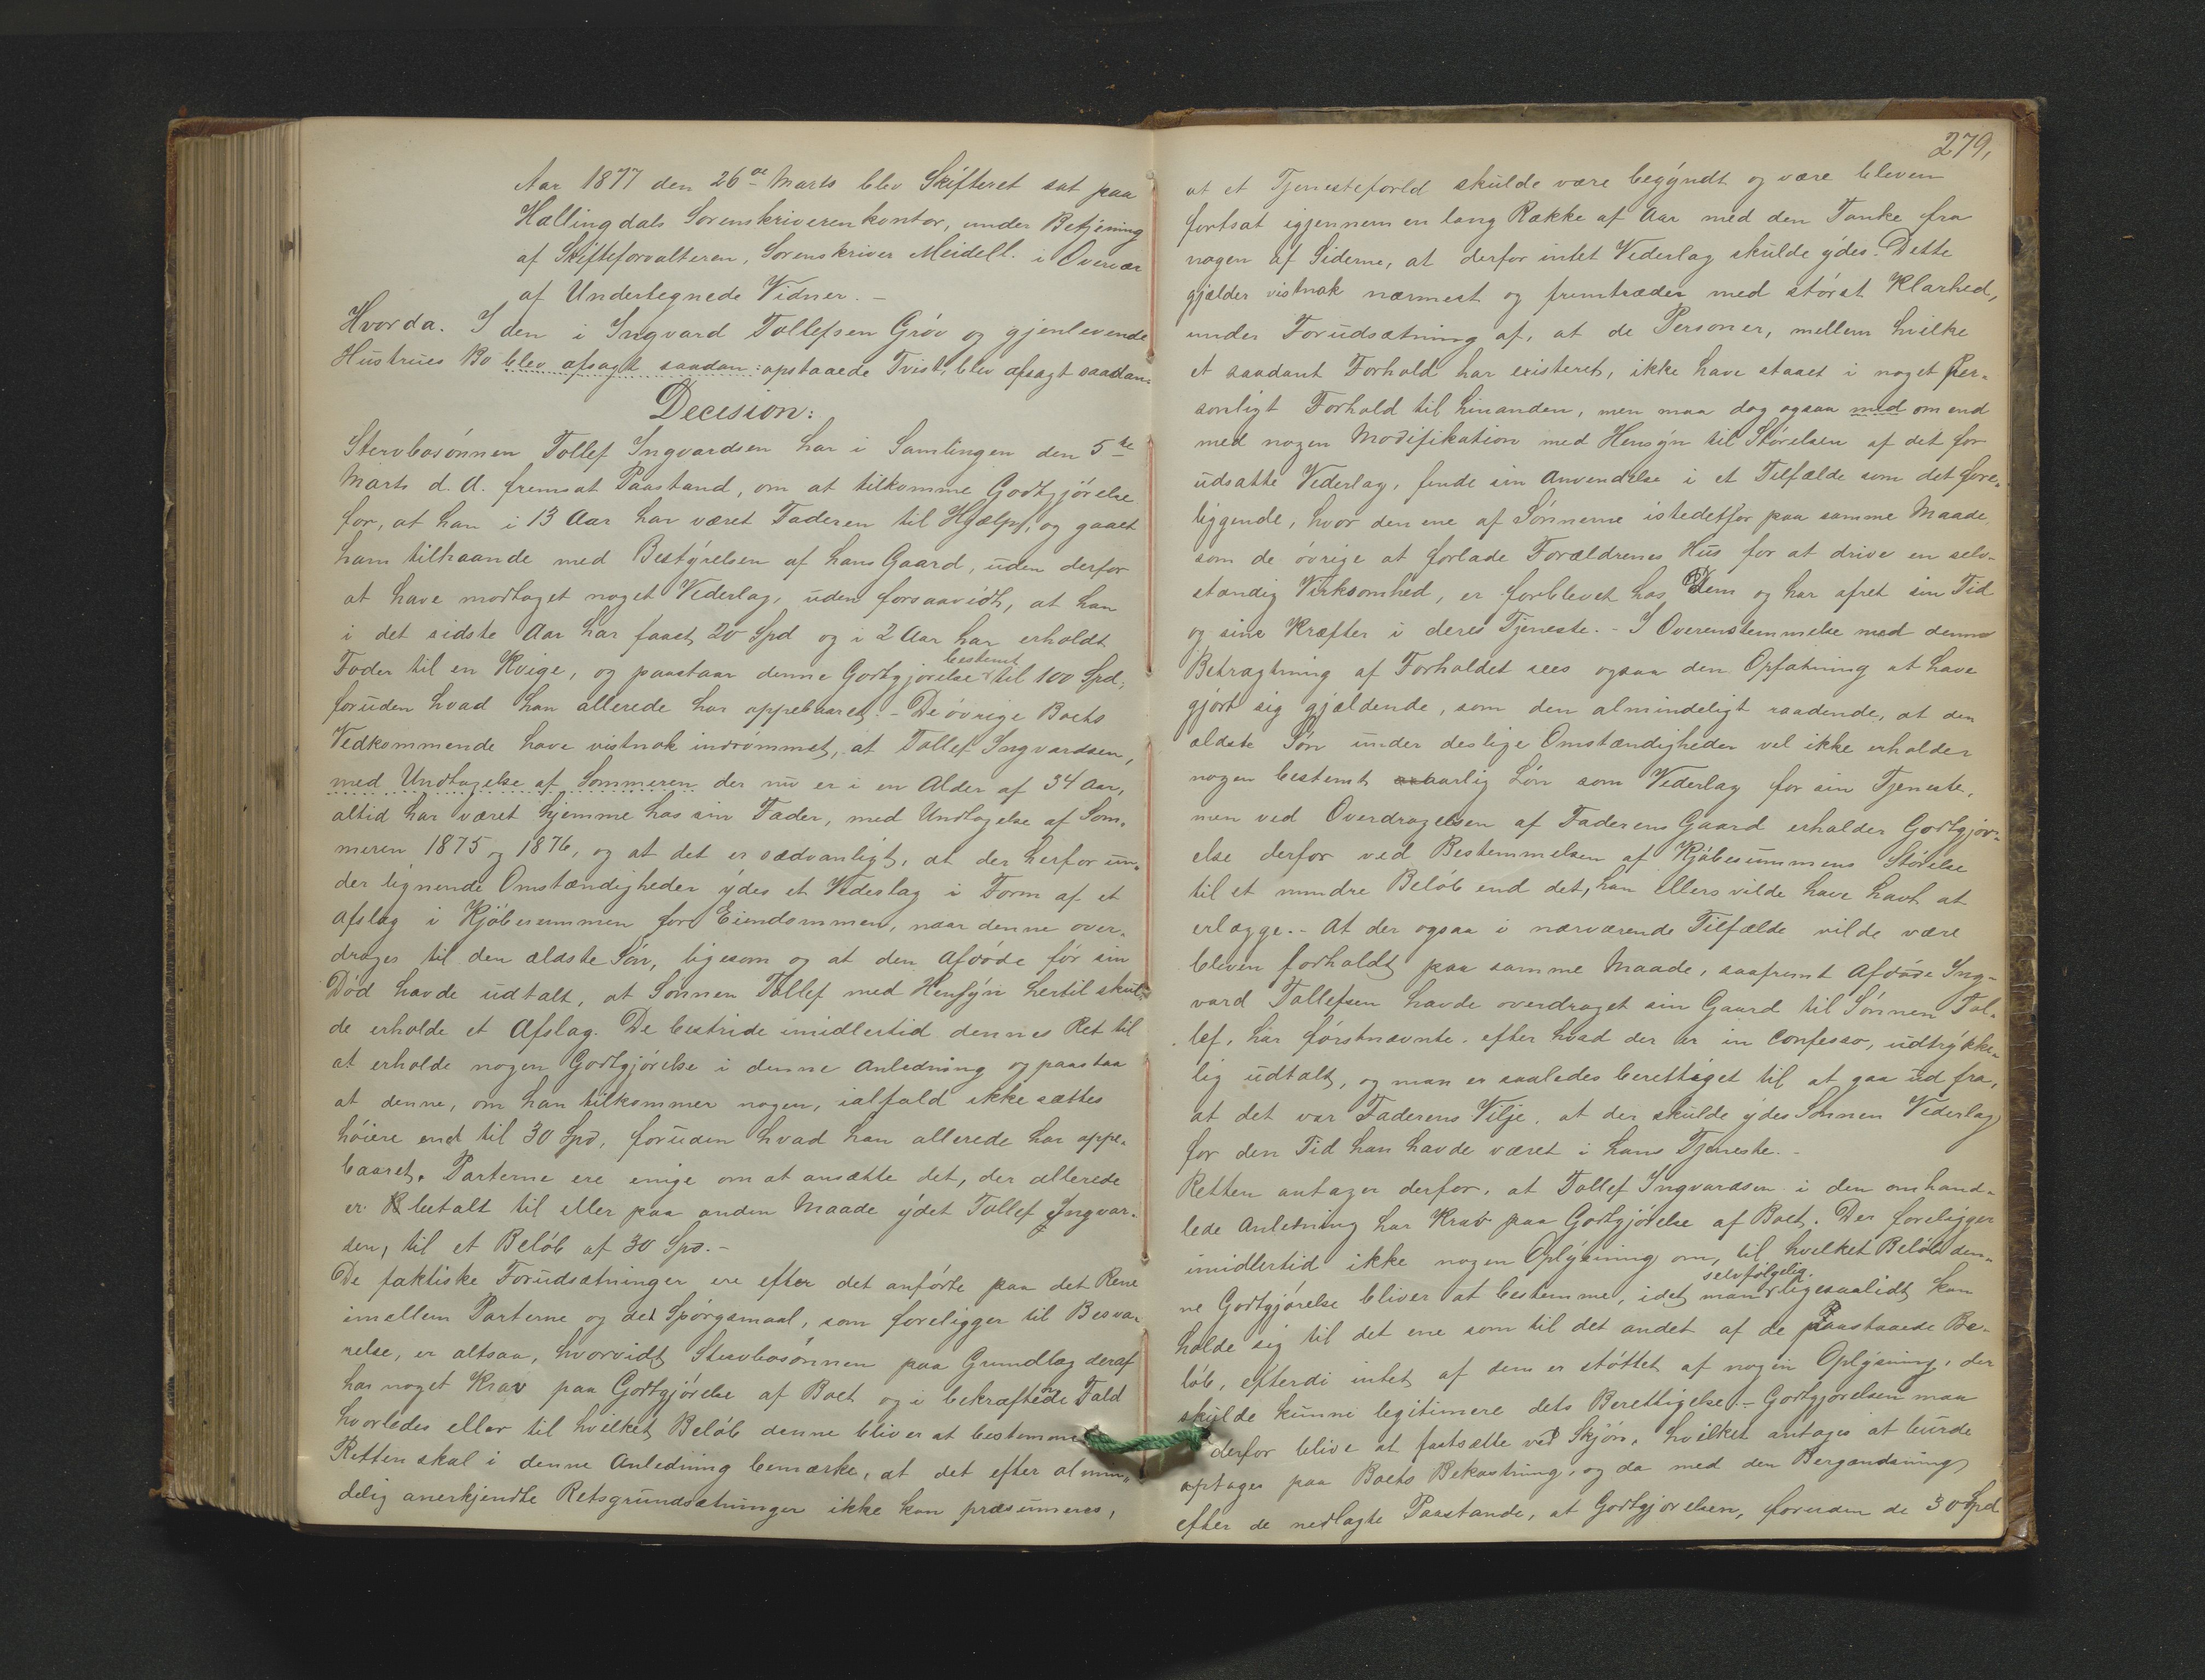 Aar 1877 den 26de Marts blev Skifteret sat paa
Hallingdals Sorenskriverenkontor, under Betjening
af Skifteforvalteren, Sorenskriver Meidell. i Overvær
af Undertegnede Vidner. -
Hvorda. I den i Ingvard Tollefsen Grøv og gjenlevende
Hustrues Bo blev afsagt saadan: opstaaede Tvist, blev afsagt saadan
Decision:
Stervbosønnen Tollef Ingvardsen har i Samlingen den 5te
Marts d. A. fremsat Paastand, om at tilkomme Godtgjørelse
for, at han i 13 Aar har været Faderen til Hjælp, og gaaet
ham tilhaande med Bestyrelsen af hans Gaard, uden derfor
at have modtaget noget Vederlag, uden forsaavidt, at han
i det sidste Aar har faaet 20 Spd og i 2 Aar har erholdt
Foder til en Kvige, og paastaar denne Godtgjørelse bestemt til 100 Spd,
foruden hvad han allerede har oppebaaret. - De øvrige Boets
Vedkommende have vistnok indrømmet, at Tollef Ingvardsen,
med Undtagelse af Sommeren der nu er i en Alder af 34 Aar,
altid har været hjemme hos sin Fader, med Undtagelse af Som-
meren 1875 og 1876, og at det er sædvanligt, at der herfor un-
der lignende Omstændigheder ydes et Vederlag i Form af et
Afslag i Kjøbesummen for Eiendommen, naar denne over-
drages til den ældste Søn, ligesom og at den Afdøde før sin
Død havde udtalt, at Sønnen Tollef med Hensyn hertil skul-
de erholde et Afslag. De bestride imidlertid dennes Ret til
at erholde nogen Godtgjørelse i denne Anledning og paastaa
at denne, om han tilkommer nogen, ialfald ikke sættes
høiere end til 30 Spd, foruden hvad han allerede har oppe-
baaret. Parterne ere enige om at ansætte det, der allerede
er betalt til eller paa anden Maade ydet Tollef Ingvar-
sen, til et Beløb af 30 Spd. -
De faktiske Forudsætninger ere efter det anførte paa det Rene
imellem Parterne og det Spørgsmaal, som foreligger til Besva-
relse, er altsaa, hvorvidt Stervbosønnen paa Grundlag deraf
har noget Krav paa Godtgjørelse af Boet og i bekræftende Fald
hvorledes eller til hvilket Beløb denne bliver at bestemme
Retten skal i denne Anledning bemærke, at det efter almin-
delig anerkjendte Retsgrundsætninger ikke kan præsumeres,
279,
at et Tjenesteforld skulde være begyndt og være bleven
fortsat igjennem en lang Række af Aar med den Tanke fra
nogen af Siderne, at derfor intet Vederlag skulde ydes. Dette
gjælder vistnok nærmest og fremtræder med størst Klarhed,
under Forudsætning af, at de Personer, mellem hvilke
et saadant Forhold har existeret, ikke have staaet i noget Per-
sonligt Forhold til hinanden, men maa dog ogsaa med om end
med nogen Modifikation med Hensyn til Størelsen af det for
udsatte Vederlag, finde sin Anvendelse i et Tilfælde som det fore-
liggende, hvor den ene af Sønnerne istedetfor paa samme Maade
som de øvrige at forlade Forældrenes Hus for at drive en selv-
stændig Virksomhed, er forblevet hos Dem og har ofret sin Tid
og sine Kræfter i deres Tjeneste. - I Overenstemmelse med denne
Betragtning af Forholdet sees ogsaa den Opfatning at have
gjørt sig gjældende, som den almindeligt raadende, at den
ældste Søn under deslige Omstændigheder vel ikke erholder
nogen bestemt aarlig Løn som Vederlag for sin Tjeneste,
men ved Overdragelsen af Faderens Gaard erholder Godtgjør-
else derfor ved Bestemmelsen af Kjøbesummens Størelse
til et mindre Beløb end det, han ellers vilde have havt at
erlægge. - At der ogsaa i nærværende Tilfælde vilde være
bleven forholdt paa samme Maade, saafremt Afdøde Ing-
vard Tollefsen havde overdraget sin Gaard til Sønnen Tol-
lef, har førstnævnte, efter hvad der er in confesso, udtrykke-
lig udtalt, og man er saaledes berettiget til at gaa ud fra,
at det var Faderens Vilje, at der skulde ydes Sønnen Vederlag
for den Tid han havde været i hans Tjeneste. -
Retten antager derfor, at Tollef Ingvardsen i den omhand-
lede Anledning har Krav paa Godtgjørelse af Boet. Der foreligger
imidlertid ikke nogen Oplysning om, til hvilket Beløb den-
ne Godtgjørelse bliver at bestemme, idet man selvfølgelig. ligesaalidt kan
holde sig til det ene som til det andet af de Paastaaede Be-
løb, efterdi intet af dem er støttet af nogen Oplysning, der
skulde kunne legitimere dets Berettigelse. - Godtgjørelsen maa
derfor blive at fastsætte ved Skjøn, hvilket antages at burde
optages paa Boets Bekostning, og da med den Begrændsning
efter de nedlagte Paastande, at Godtgjørelsen, foruden de 30 Spd